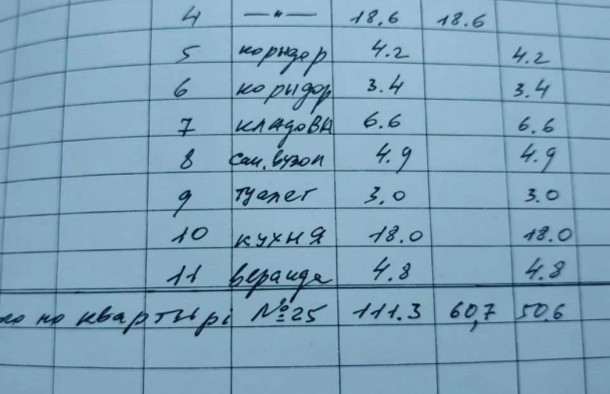 4 —"— 18.6 18.6
5 коридор 4.2 4.2
6 коридор 3.4 3.4
7 кладовн 6.6 6.6
8 сан.вузол 4.9 4.9
9 туалет 3.0 3.0
10 кухня 18.0 18.0
11 веранда 4.8 4.8
по квартирі №25 111.3 60,7 50.6